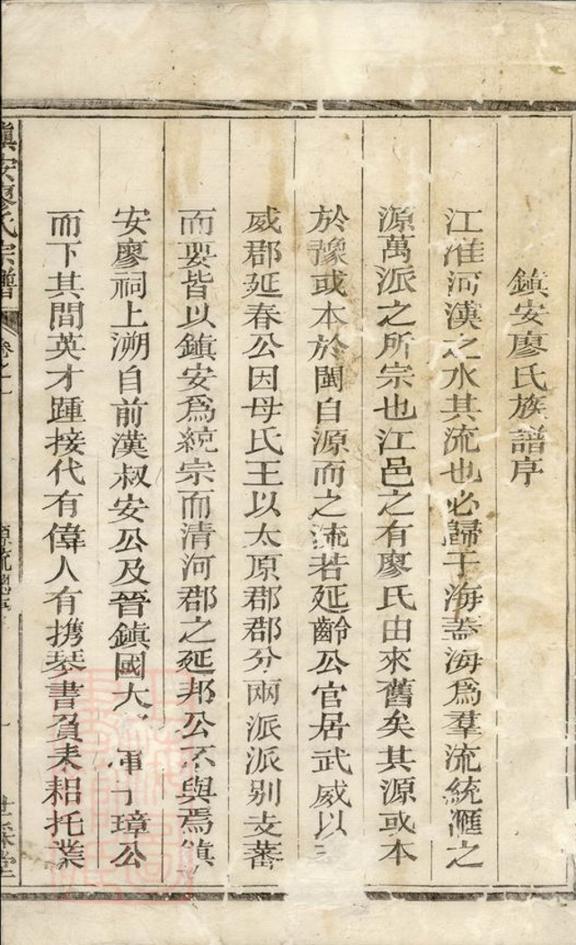 鎮安廖氏族譜序
江淮河漢之水其流也必歸于海蓋海爲羣流統滙之
源萬派之所宗也江邑之有廖氏由來舊矣其源或本
於豫或本於閩自源而之流若延齡公官居武威以
威郡延春公因母氏王以太原郡郡分兩派派别支蕃
而要皆以鎮安爲統宗而清河郡之延邦公不與焉鎮
安廖祠上溯自前漢叔安公及晉鎮國大 軍 璋公
而下其間英才踵接代有偉人有携琴書負耒耜托業
鎮安廖氏宗譜 卷之一 源流總序 一 世 堂